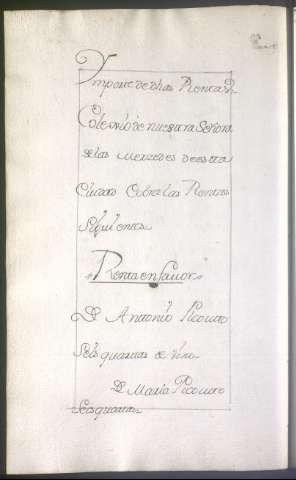 Ymporte de dhas Rentas
Colexio de nuestra Señora
de las Merzedes de esta
Ciudad Cobra las Rentas
Siguientes
Renta en favor
Dn Antonio Picouto
Seis quartas de vino
Da Maria Picouto
Seis quartas